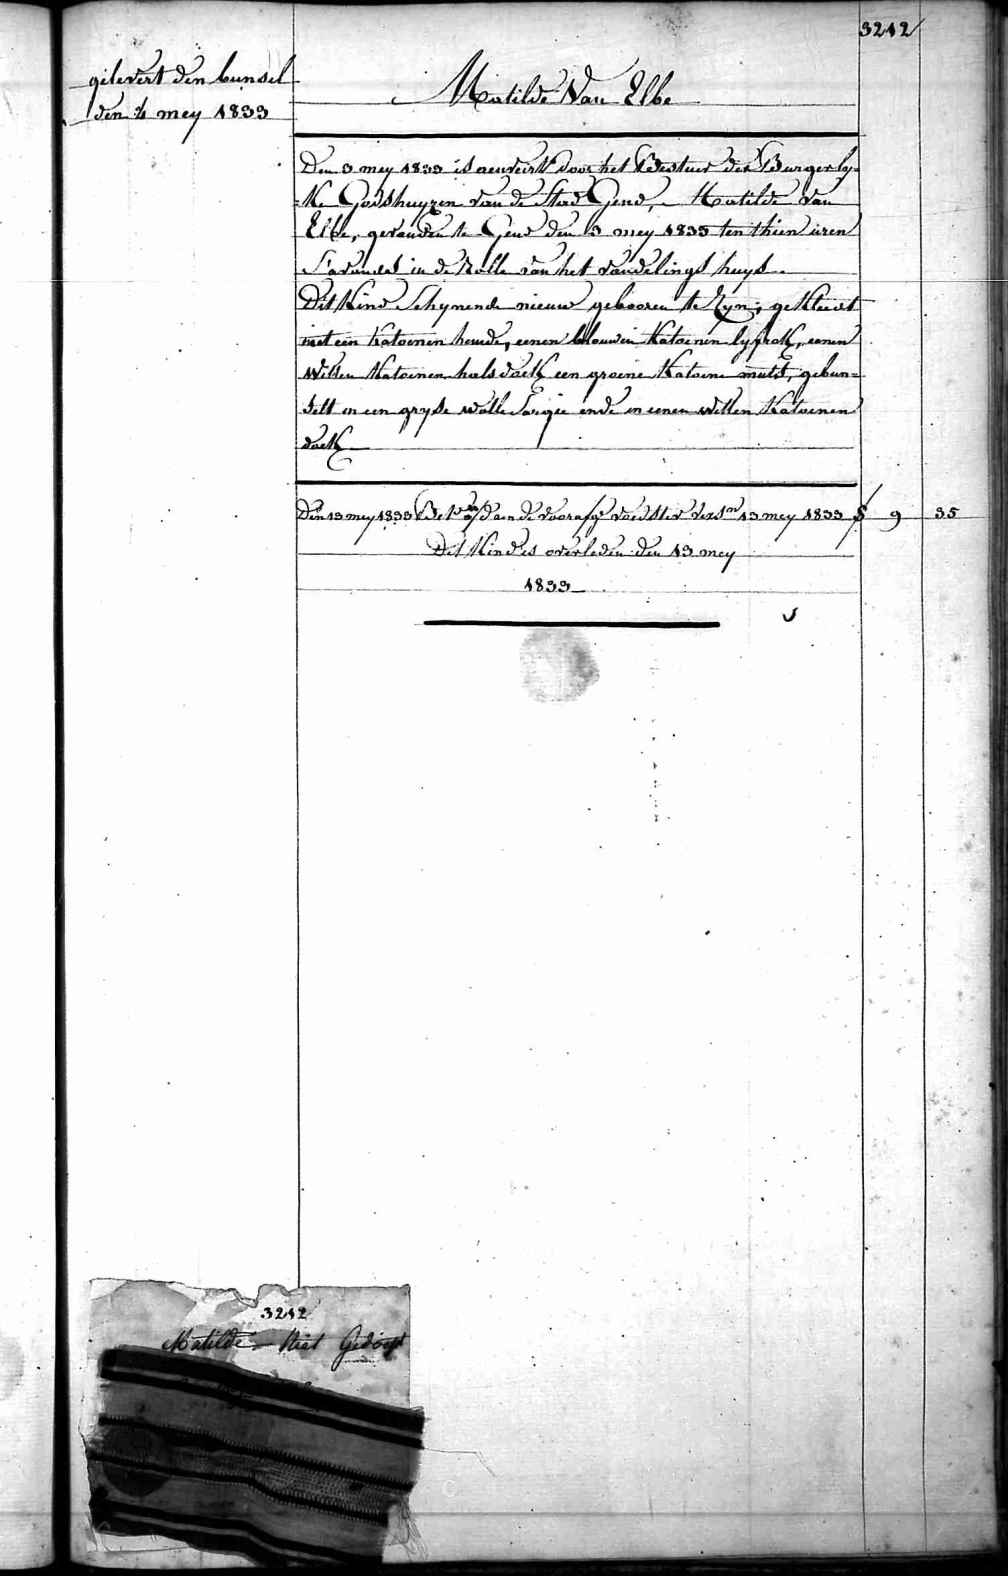 3242
gelevert den bunsel
den 4 mey 1833
Matilde Van Elbe
Den 3 mey 1833 is aenveirt door het Bestuer der Burgerly=
=ke Godshuyzen van de Stad Gend, Matilde van
Elbe, gevonden te Gend den 3 mey 1833 ten thien uren
S'avonds in de Rolle van het vondelings huys.
Dit Kind Schynende nieuw gebooren te Zyn; gekleedt
met een Katoenen hemde, eenen blouwen Katoenen lyfrok, eenen
Witten Katoenen halsdoek een groene Katoene muts, gebun=
delt in een gryse wolle Sargie ende in eenen Witten Katoenen
doek
Den 13 mey 1833 Bet. aen de voorafge voedster verso 13 mey 1833 $ 9 35
Dit Kind is overleden den 13 mey
1833
3242
Matilde Niet Gedoopt